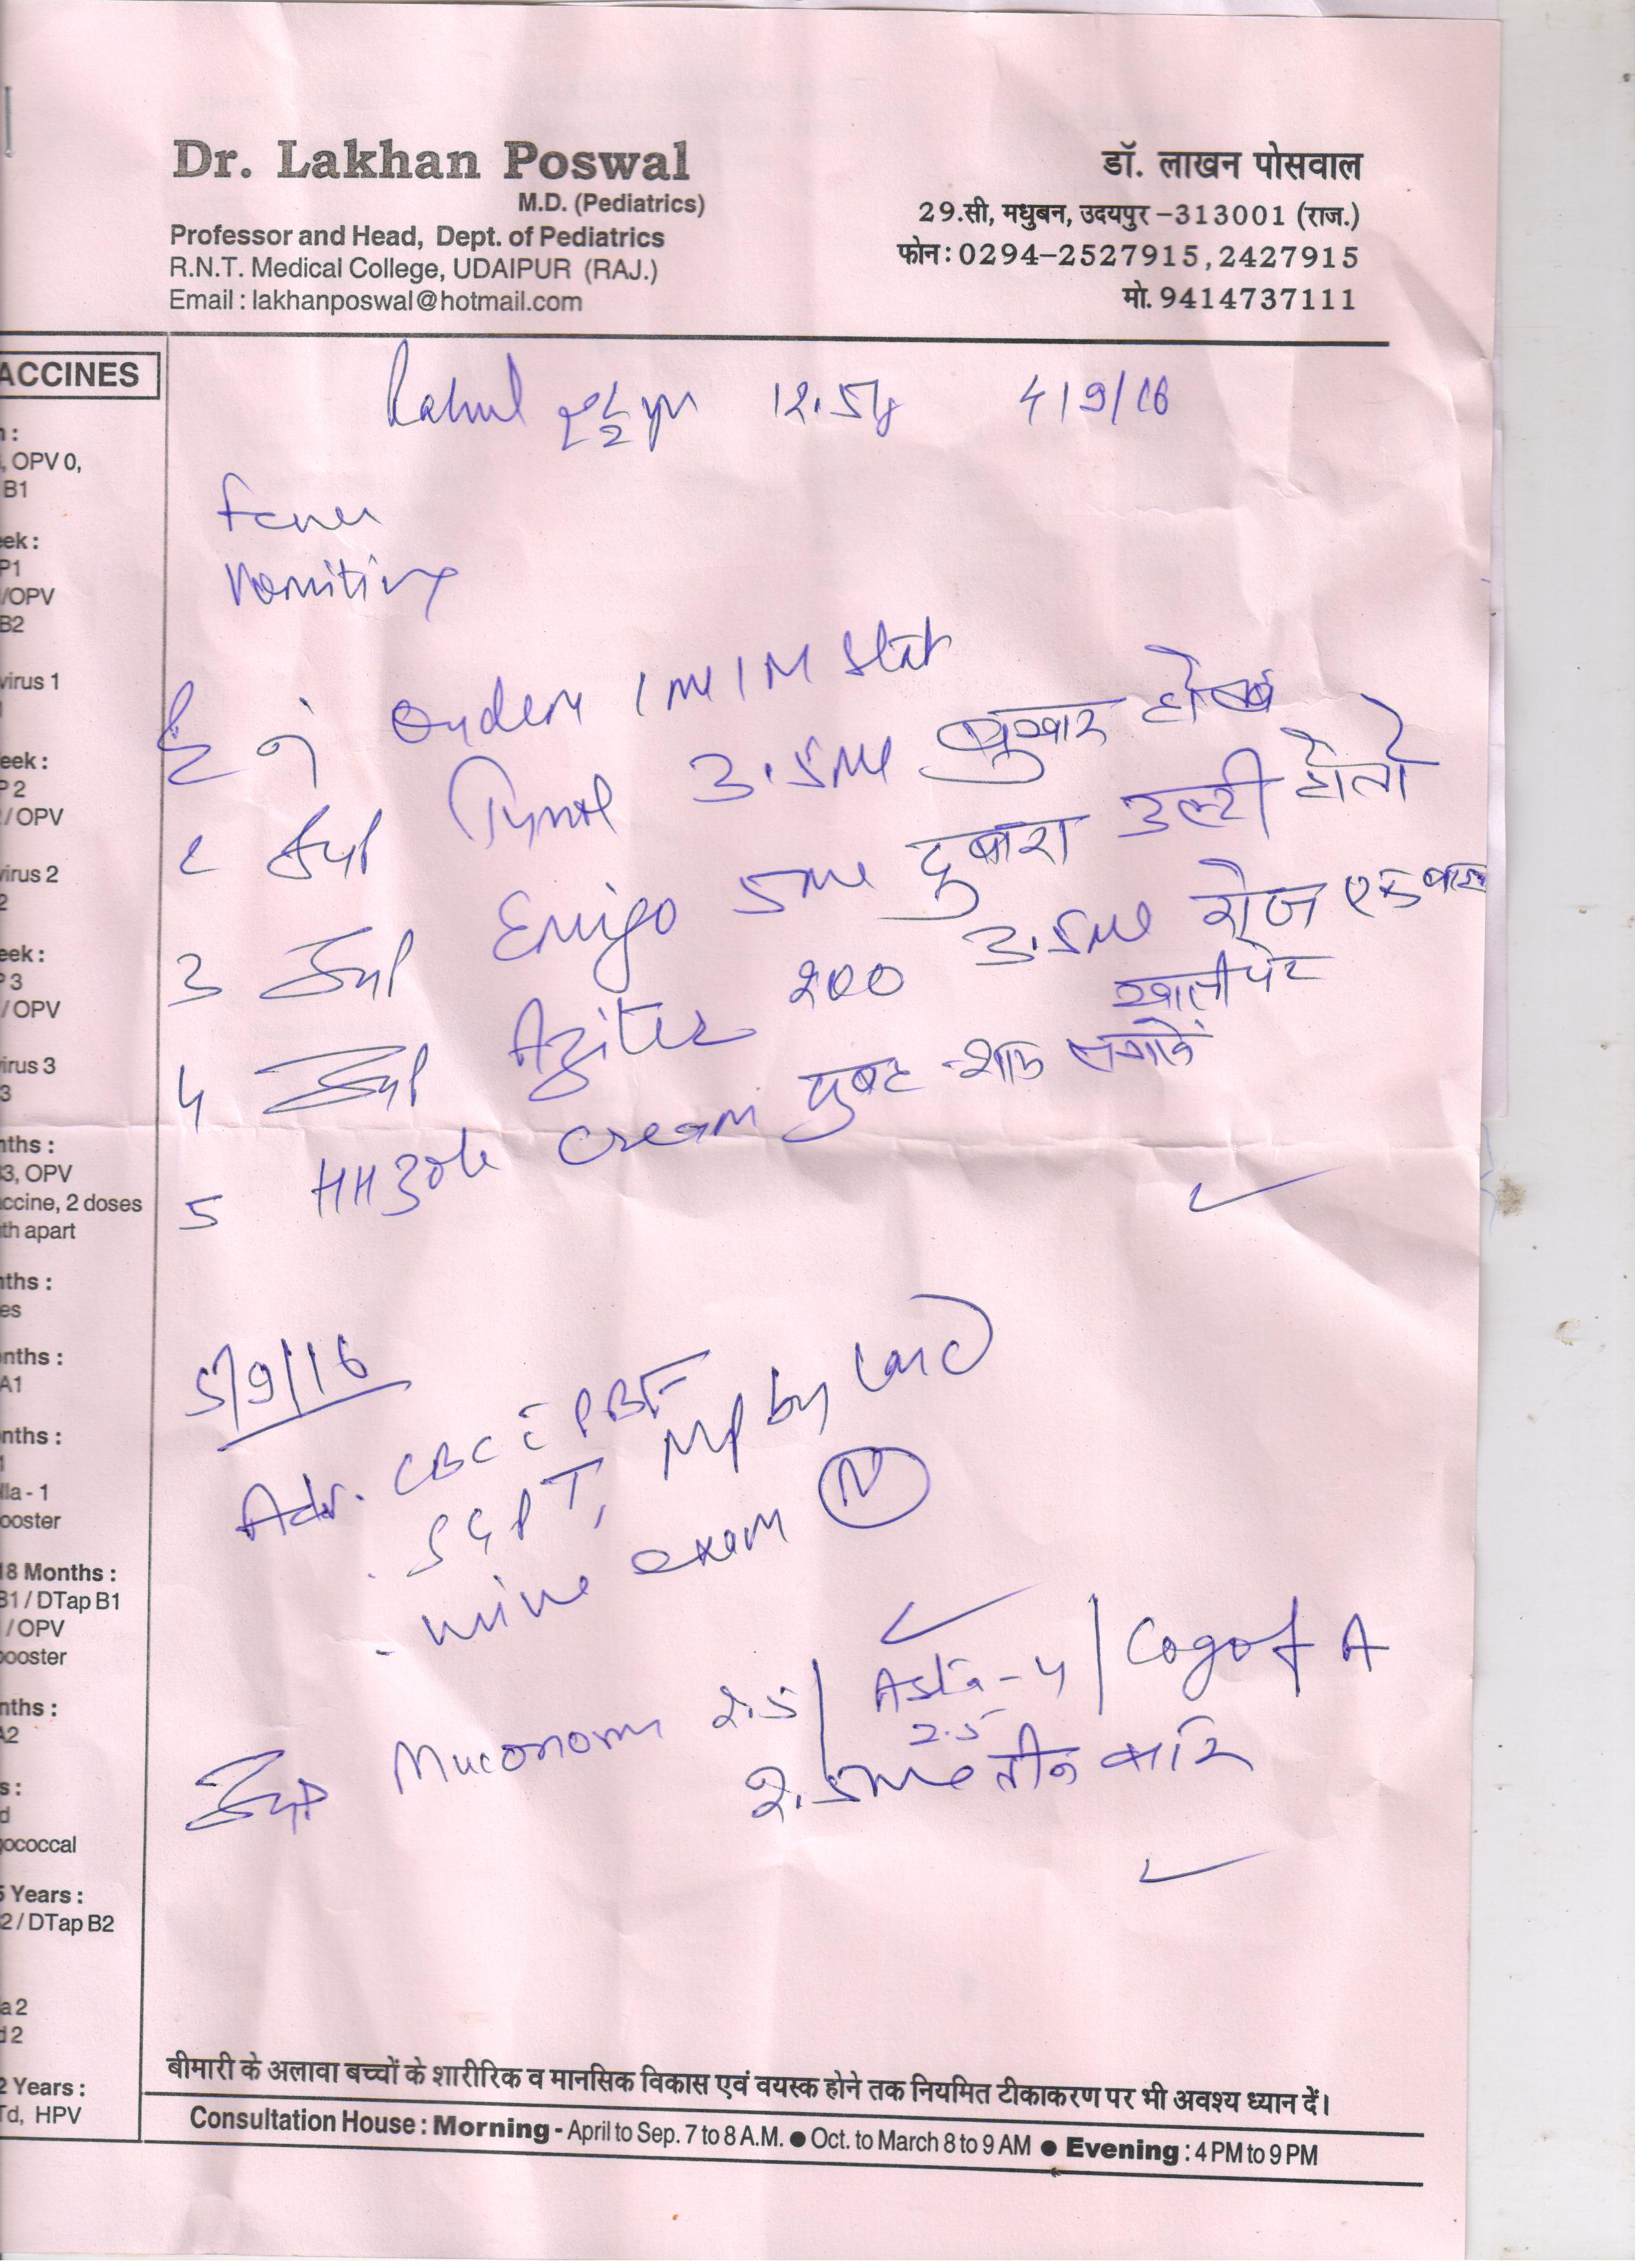 Dr. Lakhan Poswal
M.D. (Pediatrics)
Professor and Head, Dept. of Pediatrics
R.N.T. Medical College, UDAIPUR (RAJ.)
Email : lakhanposwal@hotmail.com
डॉ. लाखन पोसवाल
29.सी, मधुबन, उदयपुर -313001 (राज.)
फोन : 0294-2527915, 2427915
मो. 9414737111
ACCINES
:
, OPV 0,
B1
eek :
P1
/OPV
B2
virus 1
eek :
P 2
/ OPV
virus 2
2
eek :
P 3
/ OPV
virus 3
3
nths :
33, OPV
ccine, 2 doses
th apart
nths :
es
nths :
A1
nths :
1
lla - 1
ooster
18 Months :
B1 / DTap B1
/ OPV
booster
nths :
A2
s :
d
gococcal
5 Years :
2 / DTap B2
a 2
d 2
2 Years :
Td, HPV
Rahul 2 1/2 yr 4/9/16
Fever
Vomiting
1 ml IM Stat
2 Syp 3.5ml बुखार हो
3 Syp Emigo 5ml दुबारा उल्टी हो तो
4 Syp Aziter 200 3.5ml रोज एक बार
खाली पेट
5 HHzole cream सुबह - शाम लगावें
5/9/16
Adv. CBC c̄ PBF
SGPT, MP by Card
urine exam (N)
Syp Muconorm 2.5 / Asta-4 / Cogof A
2.5
2.5ml तीन बार
बीमारी के अलावा बच्चों के शारीरिक व मानसिक विकास एवं वयस्क होने तक नियमित टीकाकरण पर भी अवश्य ध्यान दें।
Consultation House : Morning - April to Sep. 7 to 8 A.M. ● Oct. to March 8 to 9 AM ● Evening : 4 PM to 9 PM